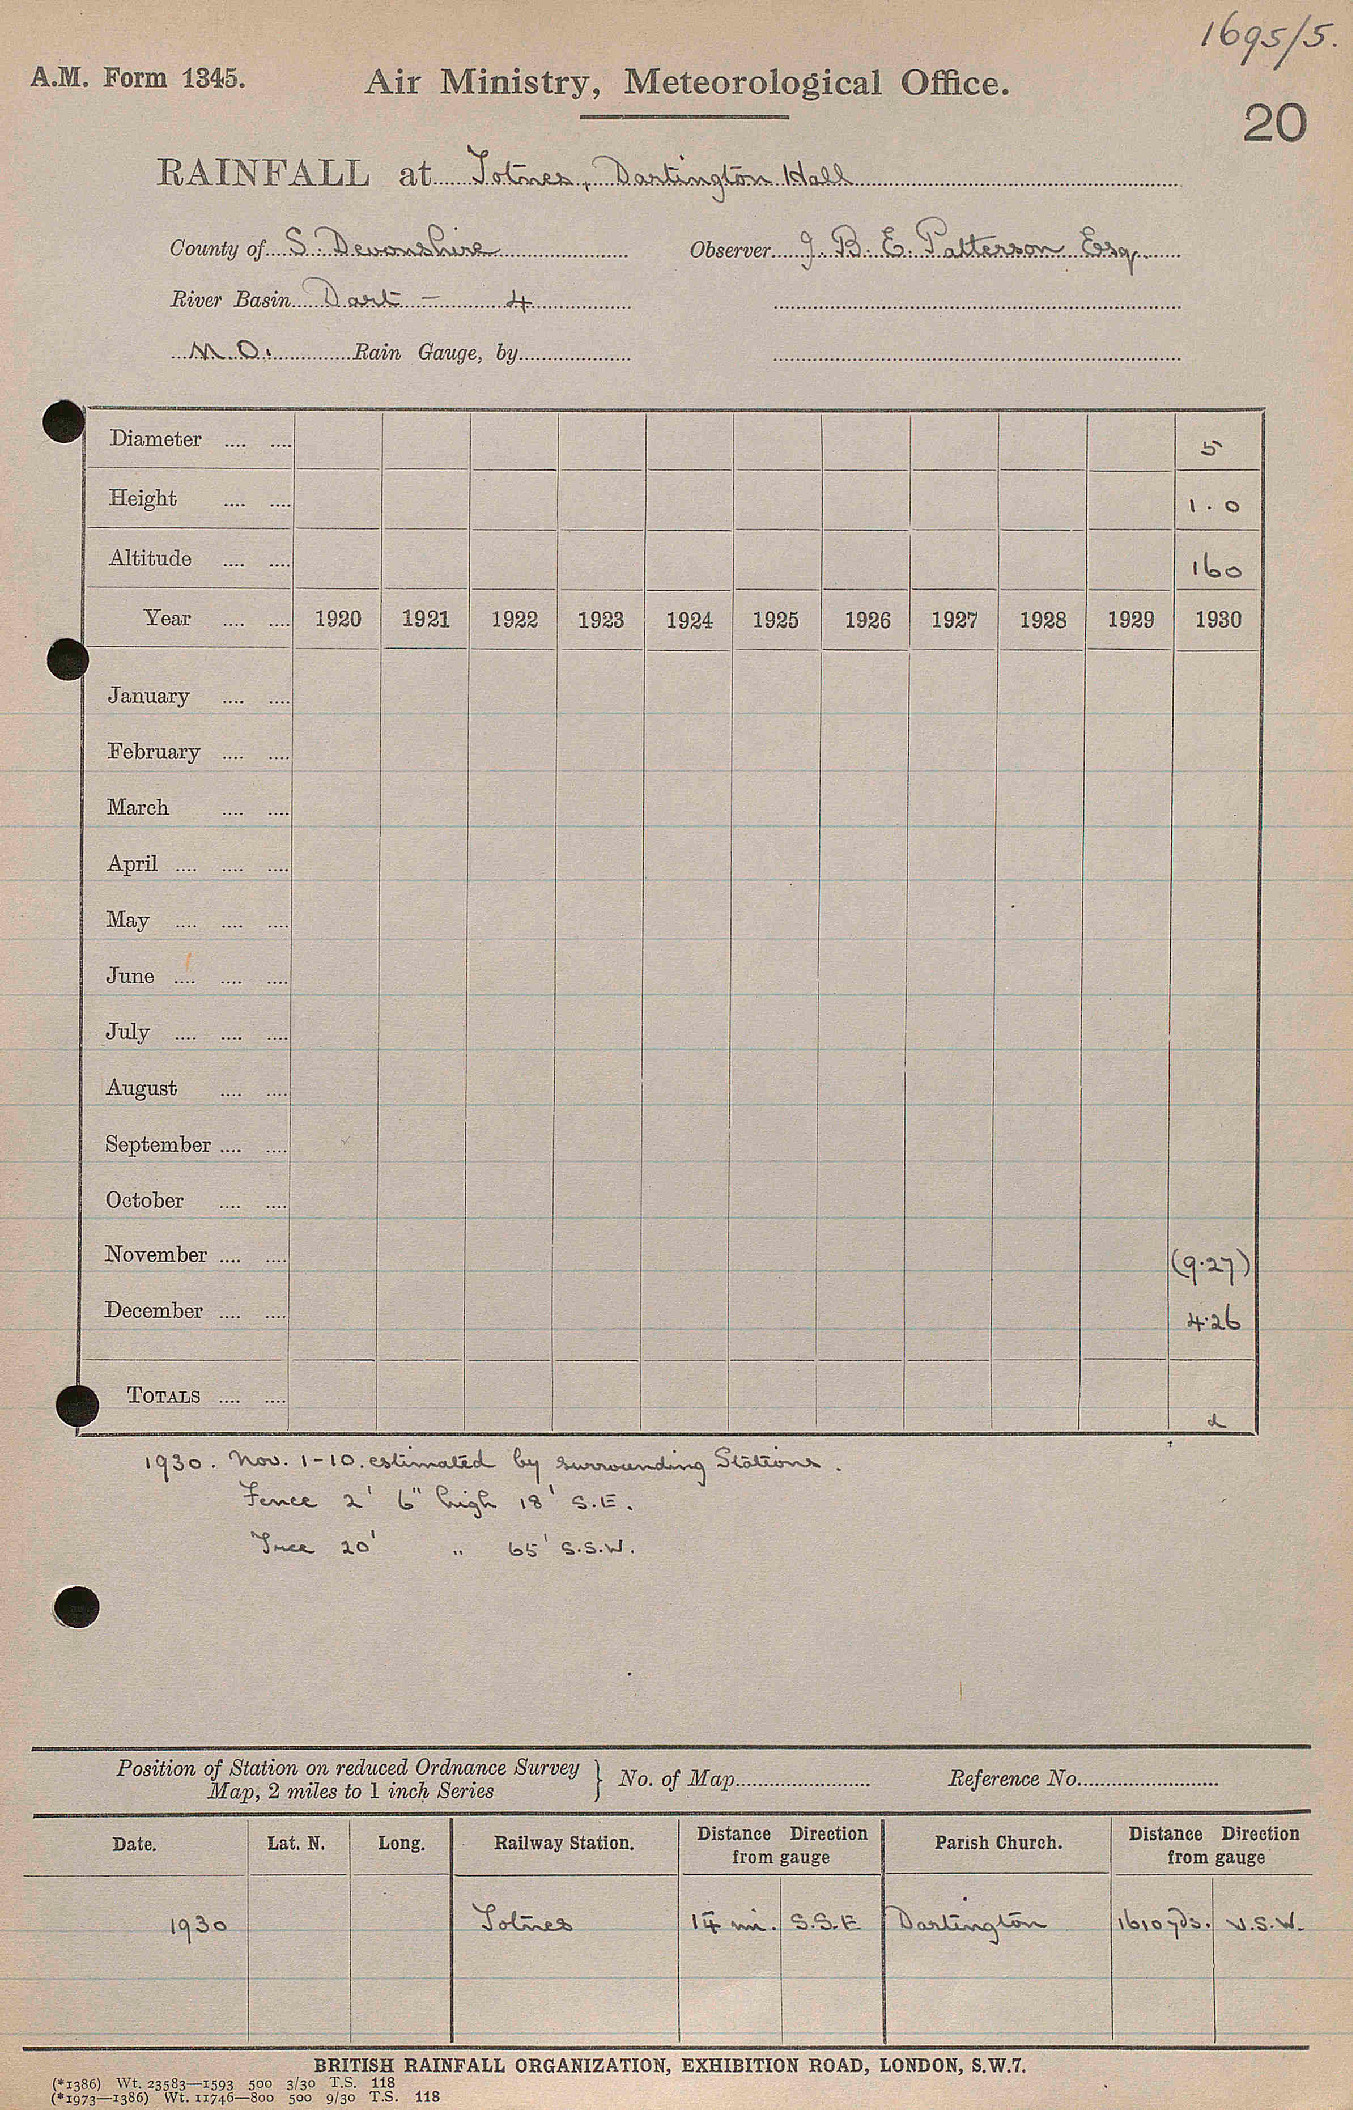 1695/5.
A.M. Form 1345. Air Ministry, Meteorological Office.
20
RAINFALL at Totnes, Dartington Hall
County of S. Devonshire Observer J. B. E. Patterson Esq.
River Basin Dart - 4
M.O. Rain Gauge, by
Diameter .... .... 5
Height .... .... 1.0
Altitude .... .... 160
Year .... .... 1920 1921 1922 1923 1924 1925 1926 1927 1928 1929 1930
January .... ....
February .... ....
March .... ....
April .... .... ....
May .... .... ....
June .... .... ....
July .... .... ....
August .... ....
September .... ....
October .... ....
November .... .... (9.27)
December .... .... 4.26
TOTALS .... ....
1930. Nov. 1-10. estimated by surrounding Stations.
Fence 2' 6" high 18' S.E.
Tree 20' " 65' S.S.W.
Position of Station on reduced Ordnance Survey
Map, 2 miles to 1 inch Series } No. of Map Reference No.
Date. Lat. N. Long. Railway Station. Distance Direction from gauge Parish Church. Distance Direction from gauge
1930 Totnes mi. S.S.E Dartington 1610 yds. .S.W.
BRITISH RAINFALL ORGANIZATION, EXHIBITION ROAD, LONDON, S.W.7.
(*1386) Wt. 23583—1593 500 3/30 T.S. 118
(*1973—1386) Wt. 11746—800 500 9/30 T.S. 118